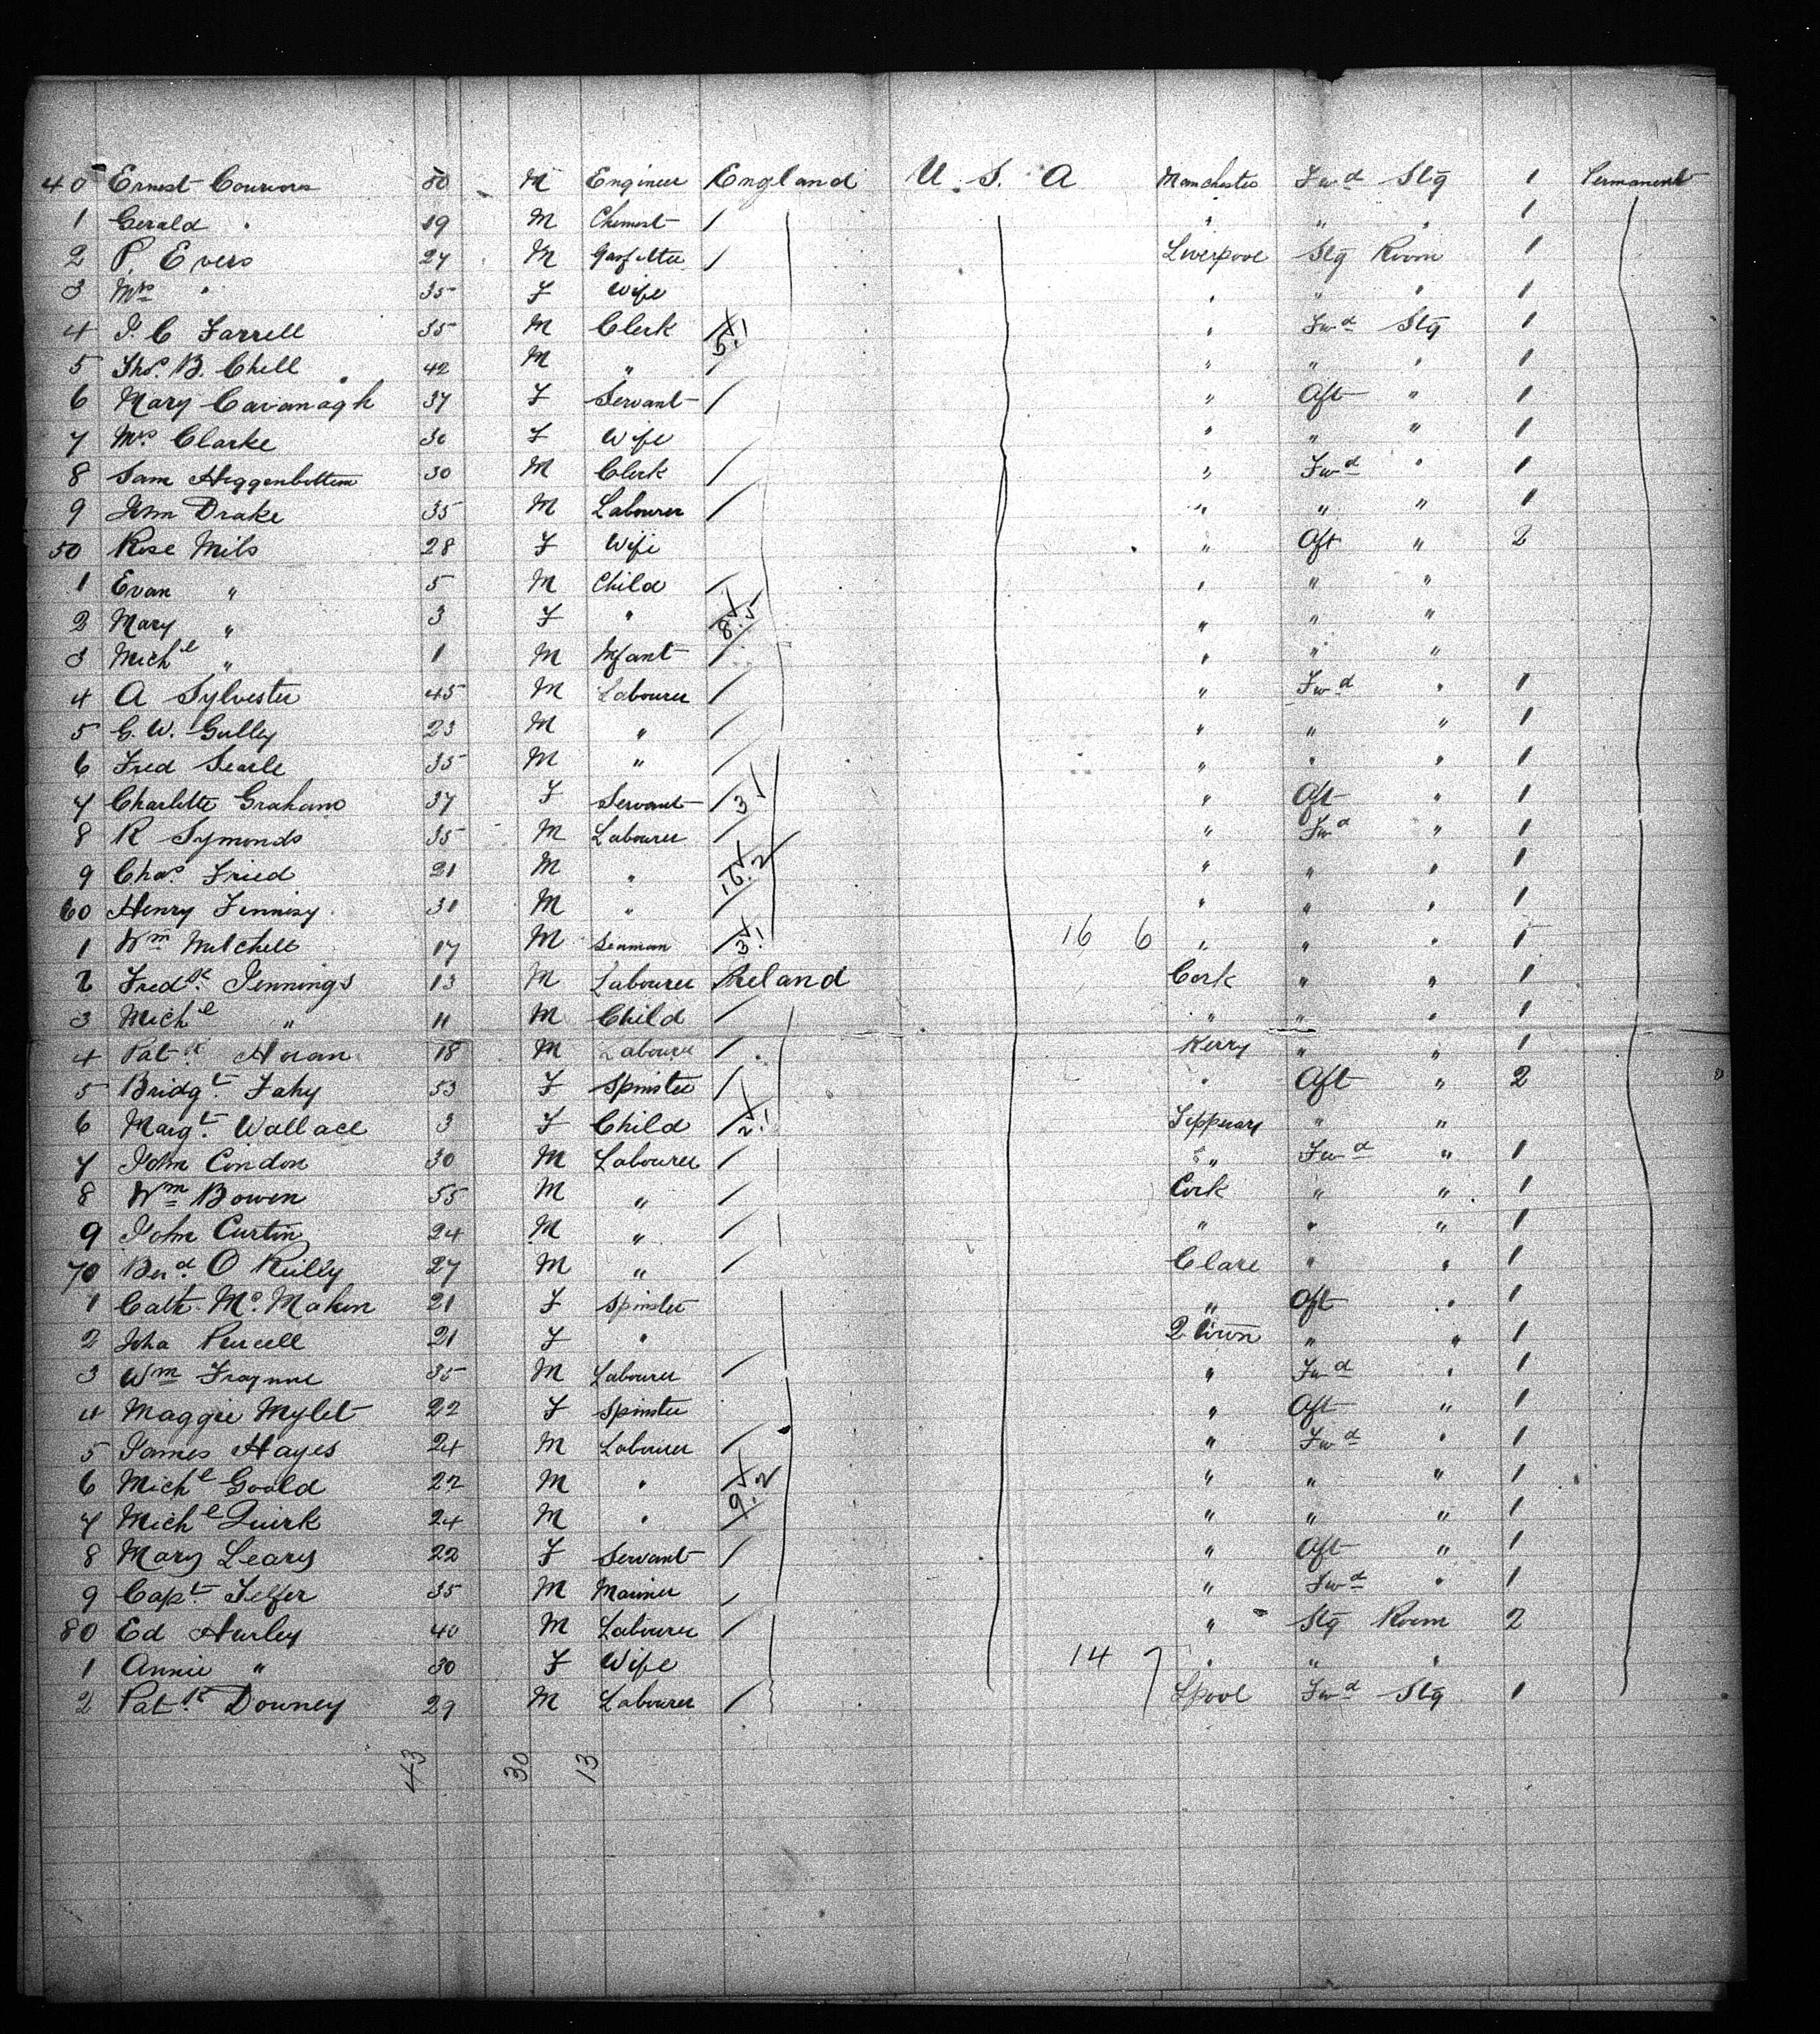 40 Ernest 50 M Engineer England U. S. A Manchester Fwd Stg 1 Permanent
1 Gerald " 19 M Chemist / " " " 1
2 P. Evers 27 M Gasfitter / Liverpool Stg Room 1
3 Mrs " 35 F Wife " " " 1
4 J. C Farrell 35 M Clerk / 5.1 " Fwd Stg 1
5 Thos. B. Chell 42 M " / " " " 1
6 Mary Cavanagh 37 F Servant / " Aft " 1
7 Mrs. Clarke 30 F Wife " " " 1
8 Sam Higgenbottom 30 M Clerk / " Fwd " 1
9 John Drake 35 M Labourer / " " " 1
50 Rose Mils 28 F Wife " Aft " 2
1 Evan " 5 M Child / " " "
2 Mary " 3 F " / 8.5 " " "
3 Michl " 1 M Infant / " " "
4 A Sylvester 45 M Labourer / " Fwd " 1
5 G. W. Gulley 23 M " / " " " 1
6 Fred Searle 35 M " / " " " 1
7 Charlotte Graham 37 F Servant / 3 / " Aft " 1
8 R Symonds 35 M Labourer / " Fwd " 1
9 Chas. Fried 21 M " 16.2 " " " 1
60 Henry 31 M " / " " " 1
1 Wm Mitchell 17 M Seaman / 3.1 16 6 " " " 1
2 Fredk. Jennings 13 M Labourer Ireland Cork " " 1
3 Michl " 11 M Child / " " " 1
4 Patk. Horan 18 M Labourer / Kerry " " 1
5 Bridgt. Fahy 53 F Spinster / " Aft " 2
6 Margt. Wallace 3 F Child / 2.1 Tipperary " "
7 John Condon 30 M Labourer / " Fwd " 1
8 Wm Bowen 55 M " / Cork " " 1
9 John Curtin 24 M " / " " " 1
70 Bnd. O Reilly 27 M " / Clare " " 1
1 Cath. Mc. Mahon 21 F Spinster " Aft " 1
2 Joha Purcell 21 F " Q Town " " 1
3 Wm Fraynne 35 M Labourer / " Fwd " 1
4 Maggie Mylet 22 F Spinster " Aft " 1
5 James Hayes 24 M Labourer / " Fwd " 1
6 Michl Goold 22 M " / 9.2 " " " 1
7 Michl Quirk 24 M " / " " " 1
8 Mary Leary 22 F Servant / " Aft " 1
9 Capt. Telfer 35 M Mariner / " Fwd " 1
80 Ed Hurley 40 M Labourer / " Stg Room 2
1 Annie " 30 F Wife 14 7 " " "
2 Patk. Downey 29 M Labourer / Lpool Fwd Stg 1
43 30 13